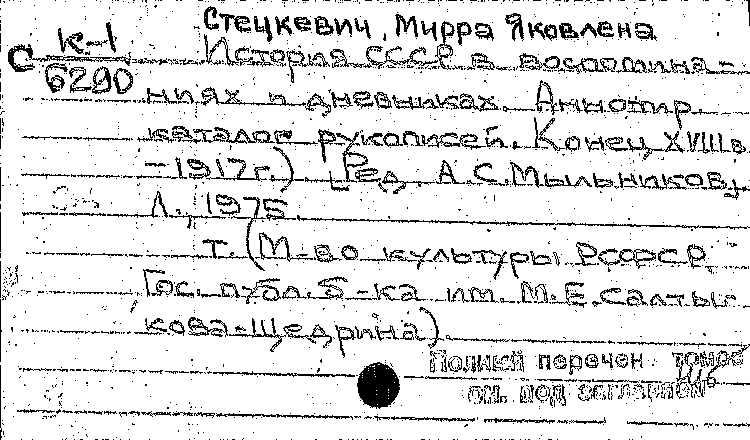 Стецкевич, Мирра Яковлена
С К-1
6290
История СССР в воспомина-
ниях и дневниках. Аннотир.
каталог рукописей. Конец XVIII в
-1917г.). [Ред. А.С.Мыльников],
Л., 1975.
т. (М-во культуры РСФСР.
Гос. публ. б-ка им. М.Е.Салты-
кова-Щедрина).
Полный перечен томов
см. под заглавием